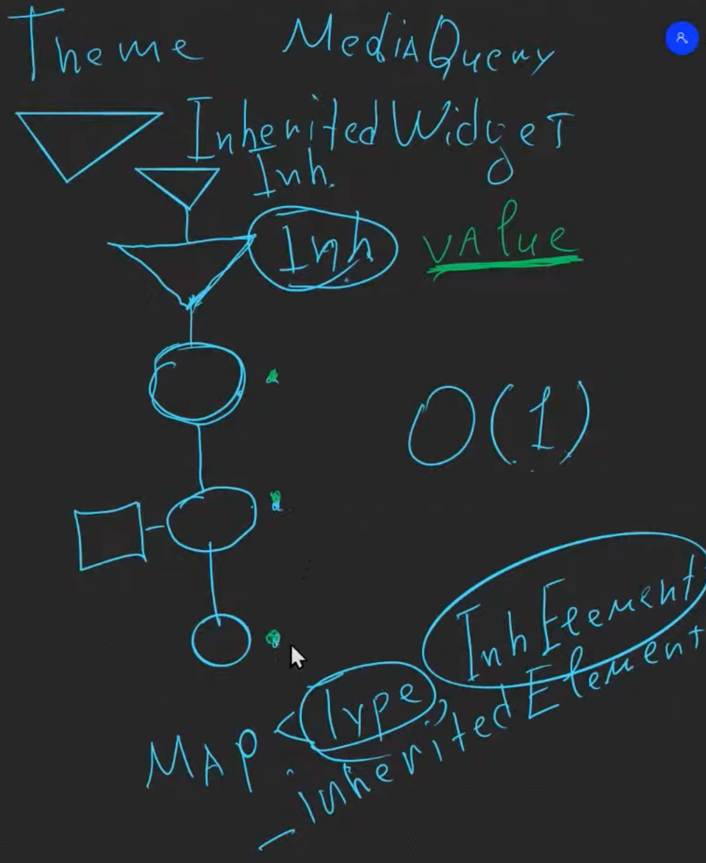 Theme MediaQuery
InheritedWidget
Inh.
Inh value
O(1)
Map <Type, InhElement
_inheritedElement